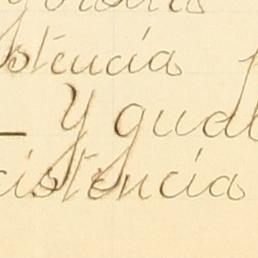 stencia
Y gual
cistencia